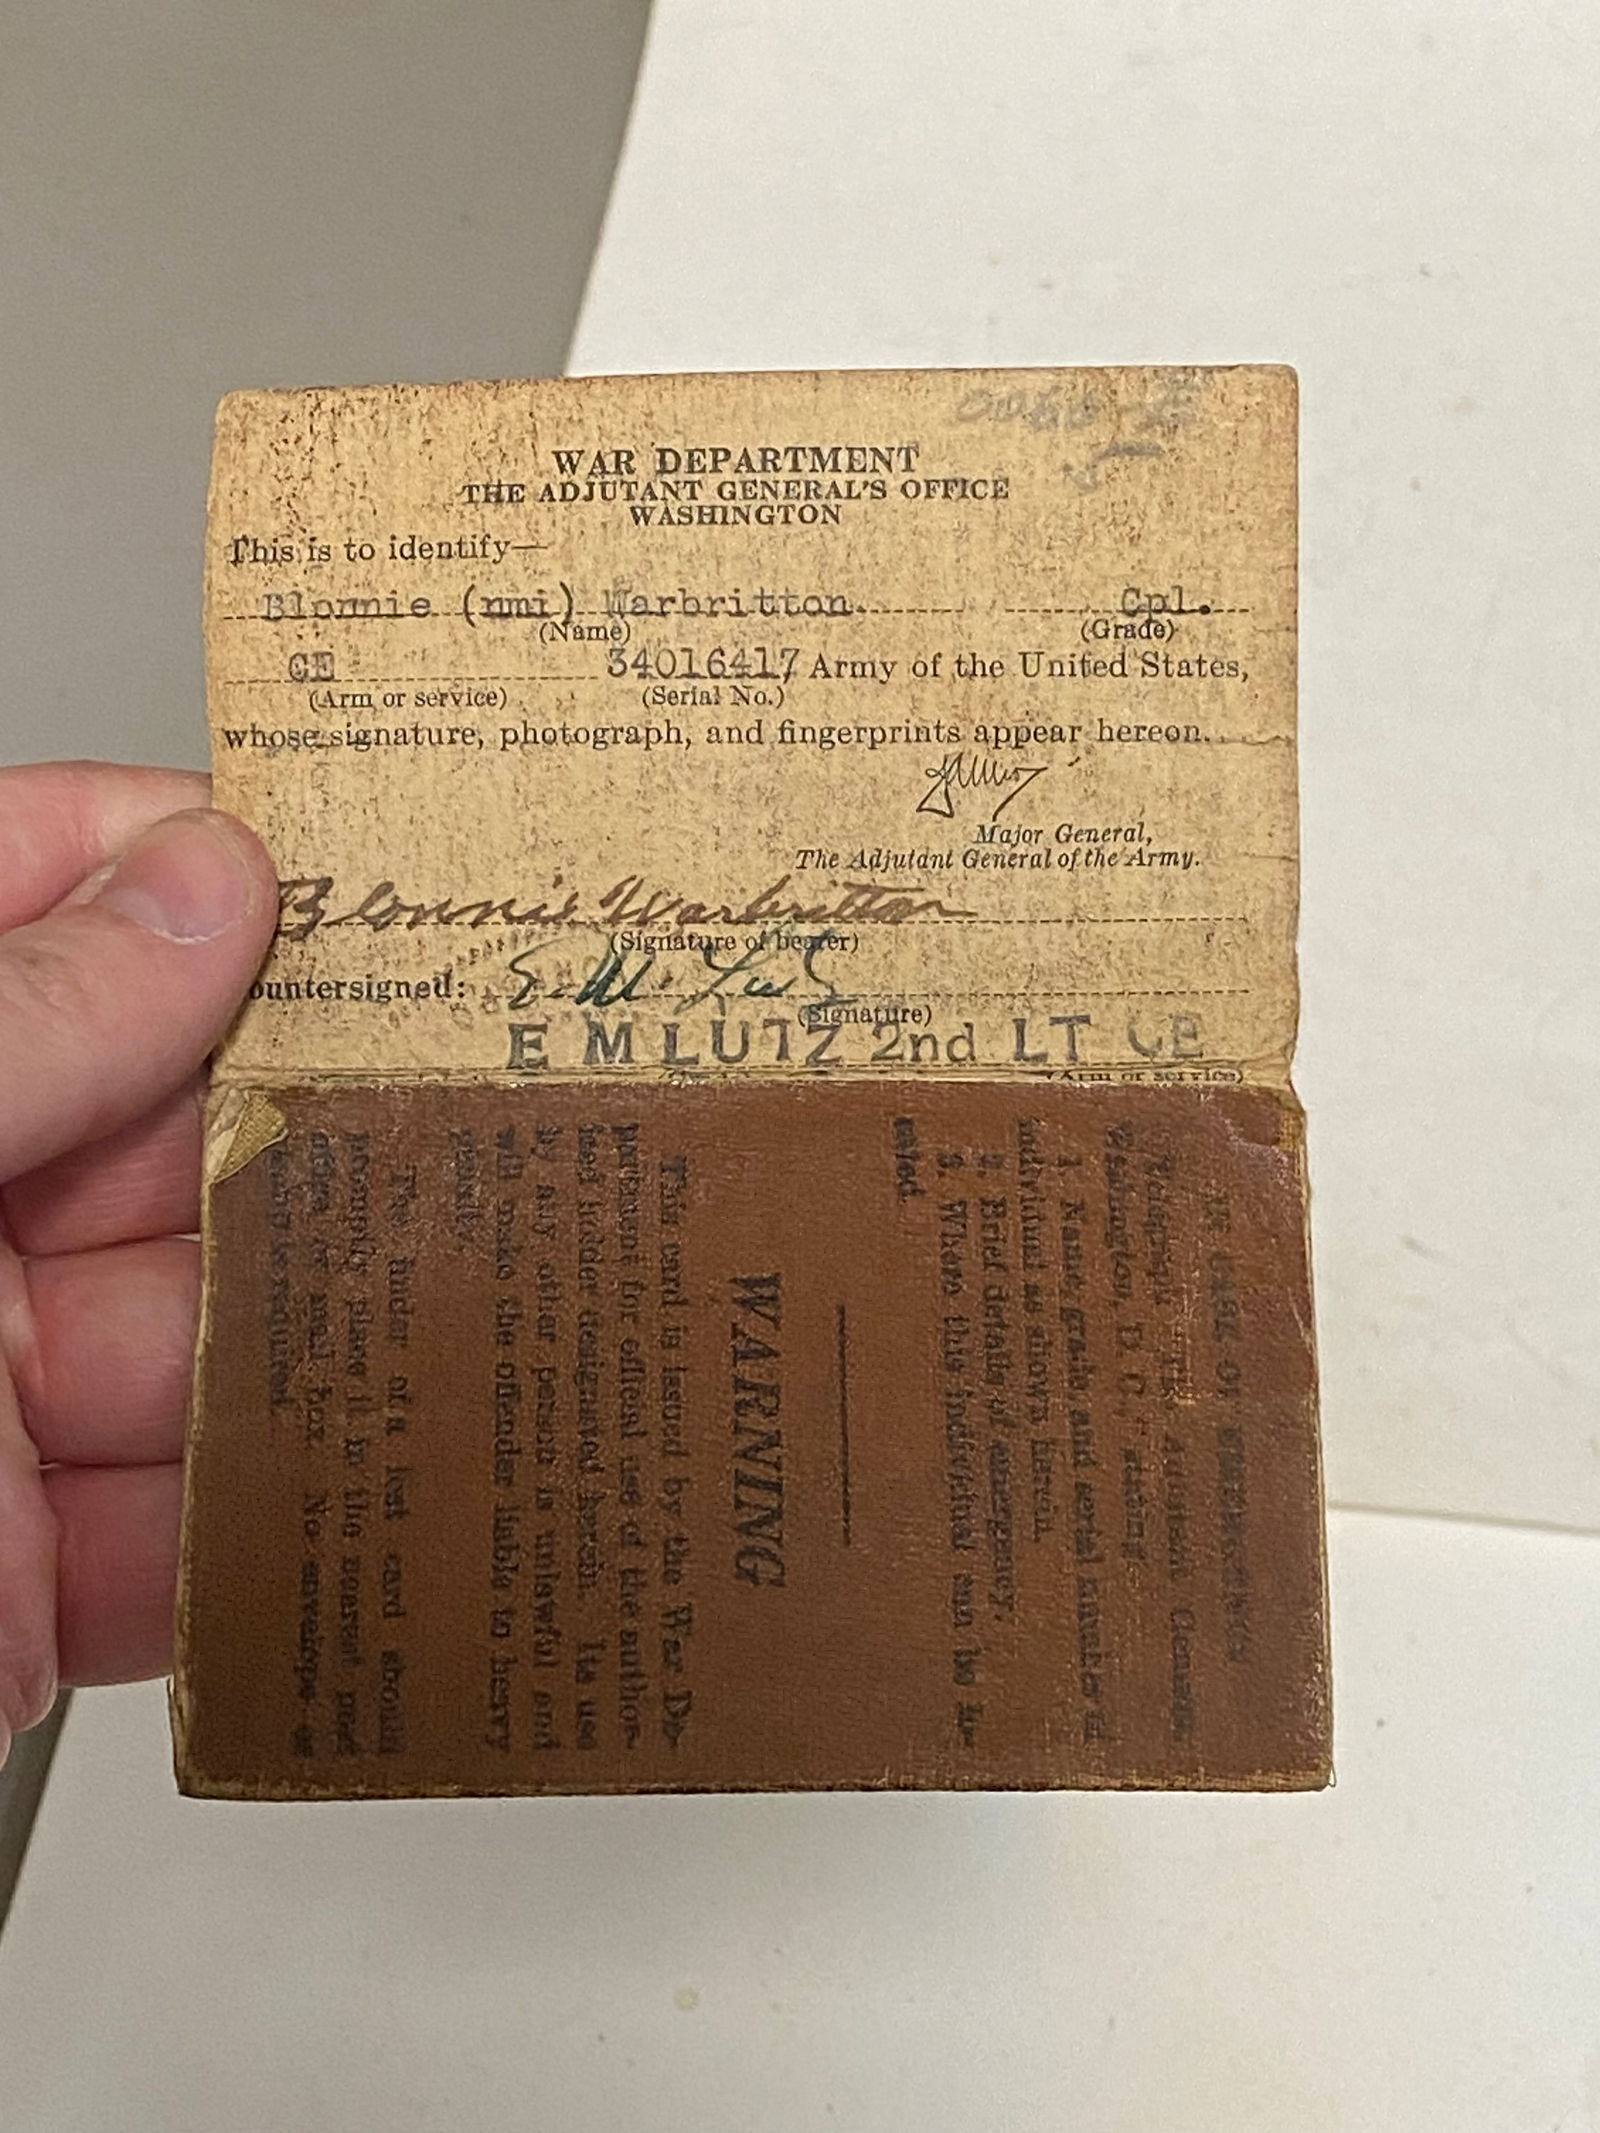 WAR DEPARTMENT
THE ADJUTANT GENERAL'S OFFICE
WASHINGTON
This is to identify—
Blonnie (nmi) Warbritton Cpl.
(Name) (Grade)
CE 34016417 Army of the United States,
(Arm or service) (Serial No.)
whose signature, photograph, and fingerprints appear hereon.
Major General,
The Adjutant General of the Army.
Blonnie Warbritton
(Signature of bearer)
ountersigned: E. M. Lutz
(Signature)
E M LUTZ 2nd LT CE
(Arm or service)
IN CASE OF EMERGENCY
Adjutant General,
Washington, D. C., stating
1. Name, grade, and serial number of
individual as shown herein.
2. Brief details of emergency.
3. Where this individual can be lo-
cated.
WARNING
This card is issued by the War De-
partment for official use of the author-
ized holder designated herein. Its use
by any other person is unlawful and
will make the offender liable to heavy
penalty.
The finder of a lost card should
promptly place it in the nearest post
office or mail box. No envelope or
is required.